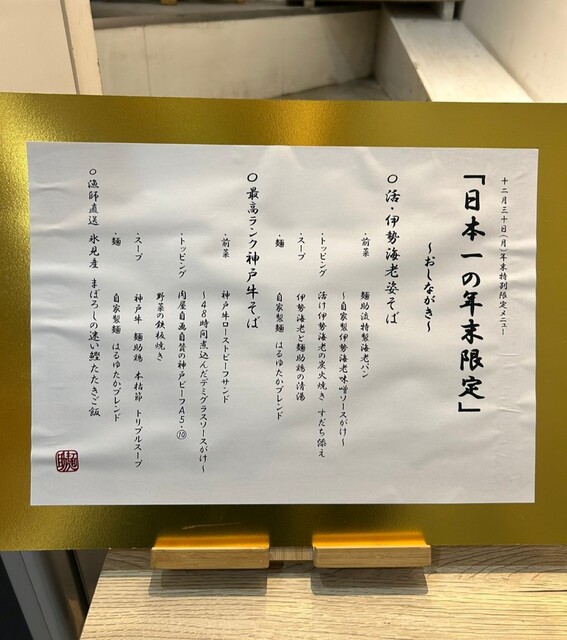 十二月三十日(月)年末特別限定メニュー
「日本一の年末限定」
～おしながき～
○活・伊勢海老姿そば
・前菜 麺助流特製海老パン
～自家製伊勢海老味噌ソースがけ～
・トッピング 活け伊勢海老の炭火焼き すだち添え
・スープ 伊勢海老と麺助鶏の清湯
・麺 自家製麺 はるゆたかブレンド
○最高ランク神戸牛そば
・前菜 神戸牛ローストビーフサンド
～48時間煮込んだデミグラスソースがけ～
・トッピング 肉屋自画自賛の神戸ビーフA5・⑩
野菜の鉄板焼き
・スープ 神戸牛 麺助鶏 本枯節 トリプルスープ
・麺 自家製麺 はるゆたかブレンド
○漁師直送 氷見産 まぼろしの迷い鰹たたきご飯